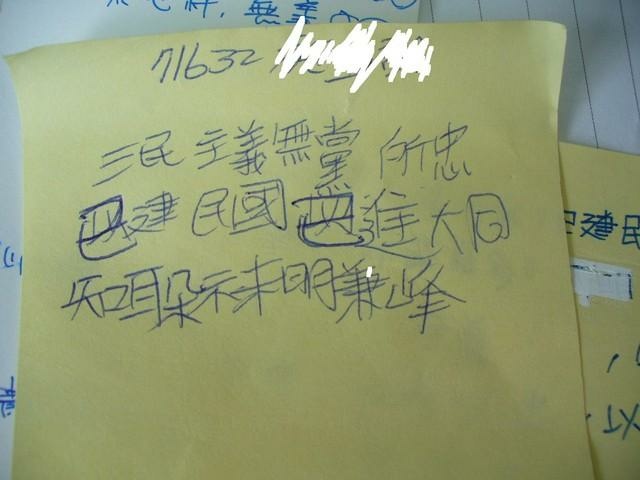 71632
三民主義無黨所忠
以建民國以進大同
知耳朵示末明兼峰
建民